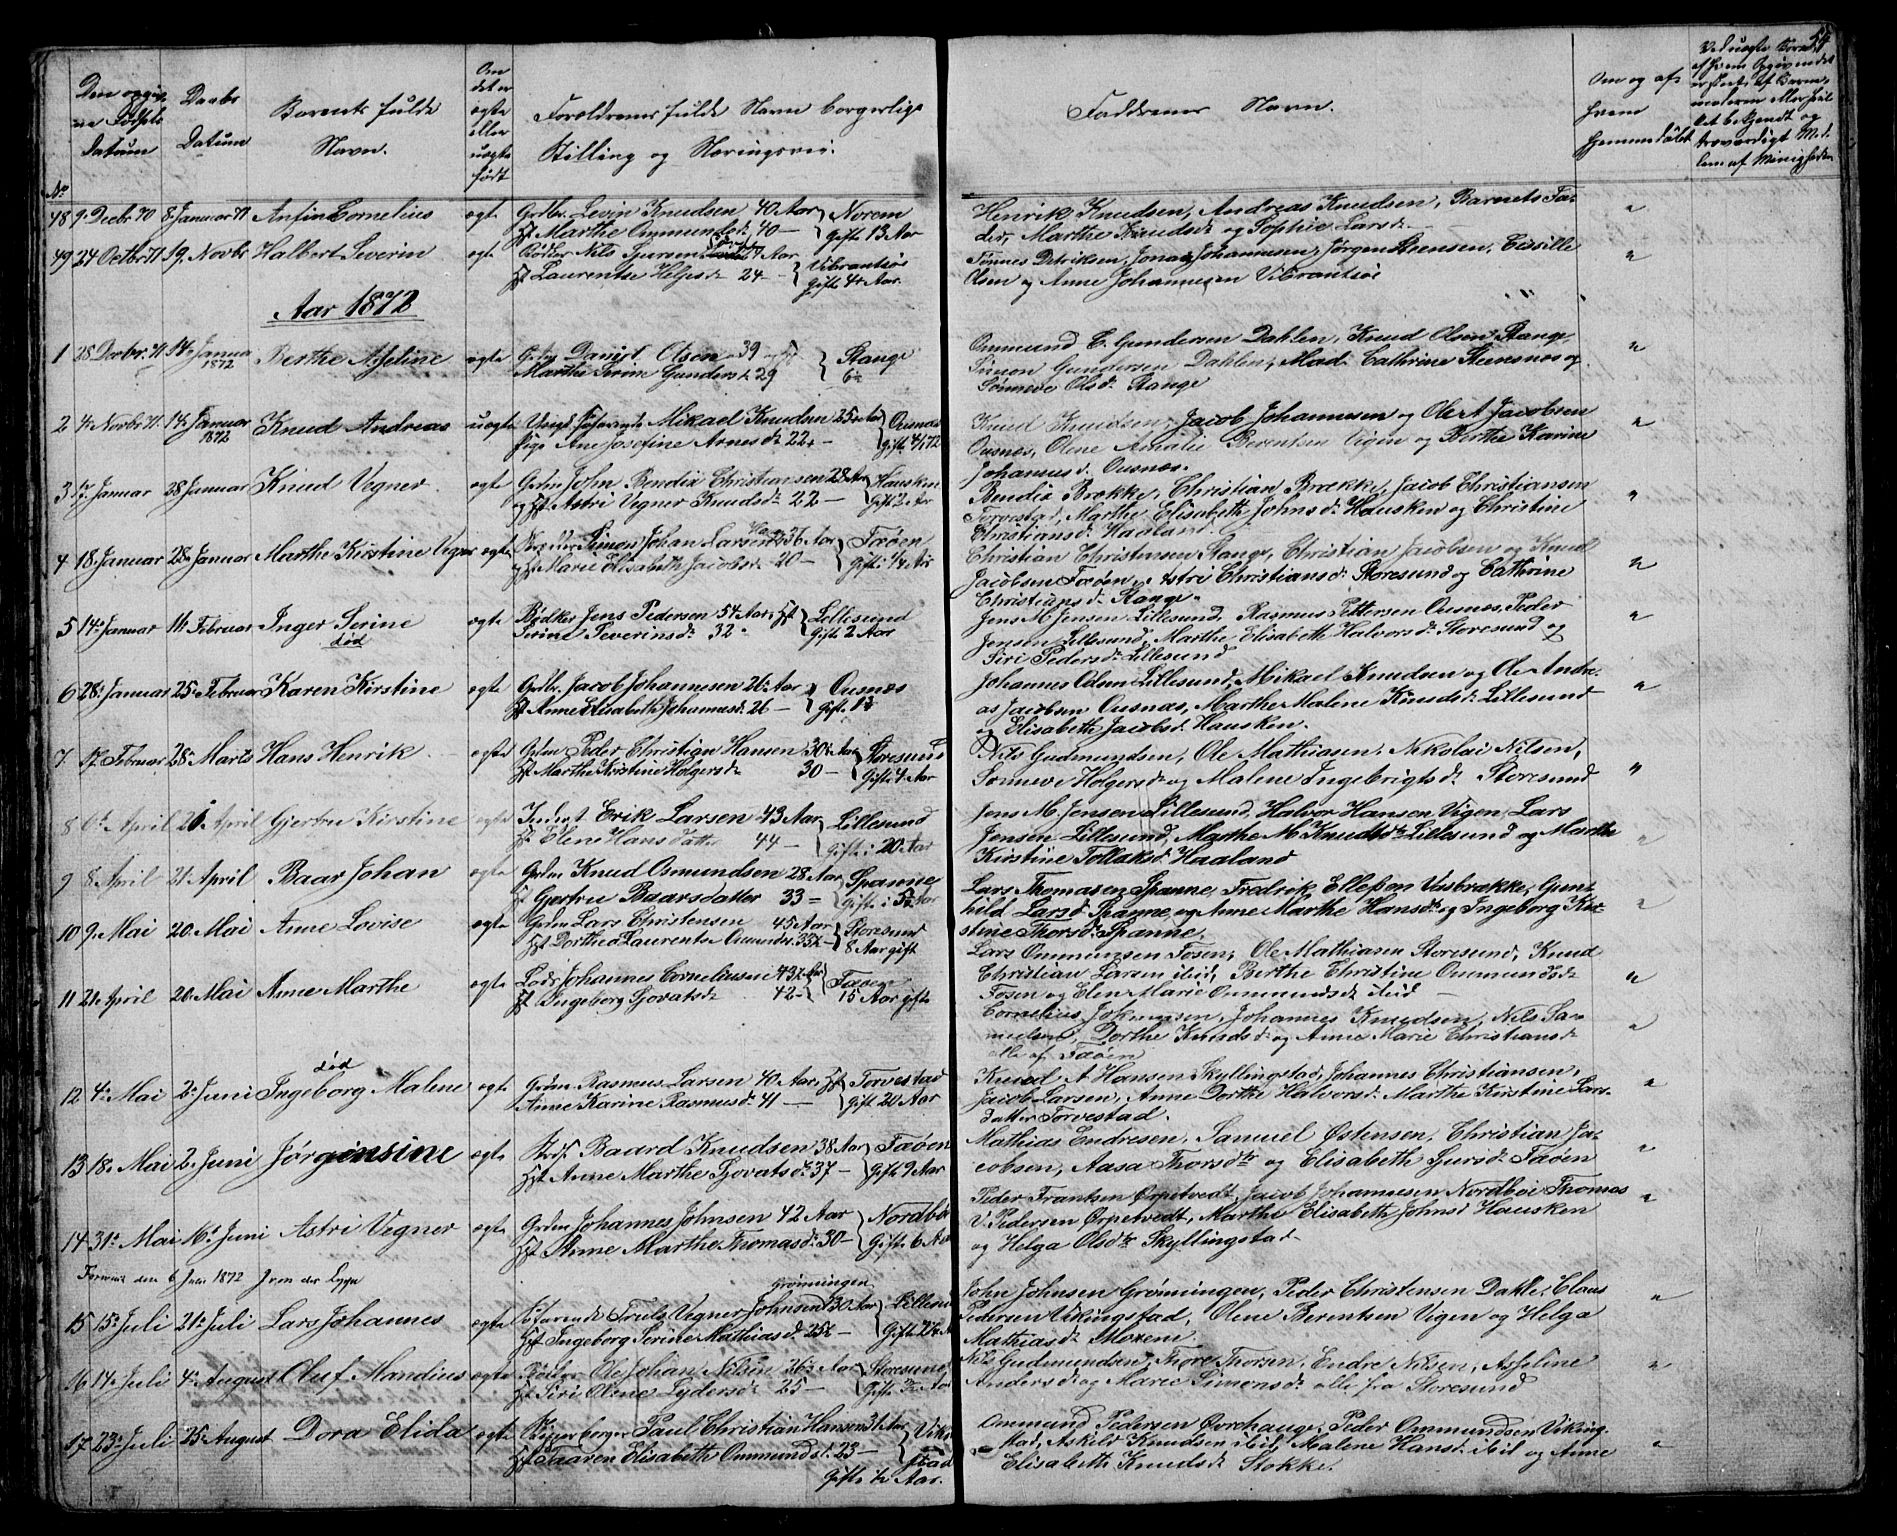 54
Den opgivne Fødsels Datum
Daabs Datum
Barnets fulde Navn.
Om det er ægte eller uægte født
Forældrenes fulde Navn borgerlige Stilling og Næringsvei.
Faddrenes Navn.
Om og af hvem hjemmedøbt
No
48 9. Decbr. 70 8. Januar 71 Anfin Cornelius ægte Grdbr. Levin Knudsen 40 Aar Norem
Hst Marthe Ommundsd. 40 — Gifte 13 Aar
Henrik Knudsen, Andreas Knudsen, Barnets Fa-
der, Marthe Knudsdr og Sophie Larsdr
49 24 Octbr 71 19. Novbr Halbert Severin ægte Bødker Nils Sjursen Aar
Hst Laurentse Helgesdr 24 — Vibrantsø
Gifte 4 Aar
Tønnes Detriksen, Jonas Johannesen, Jørgen Steensen, Cissille
Olsen og Anne Johannesen Vibrantsø
Aar 1872
1 28 Decbr. 71 14. Januar 1872 Berthe Asseline ægte Daniel Olsen 39 Stange
Marthe Serine Gundersd. 29 6
Ommund E. Gundersen Dahlen, Knud Olsen Stange,
Simon Gundersen Dahlen, Mad. Cathrine Steensnæs og
Sønneve Olsd. Stange
2 4. Novbr 71. 14. Januar 1872 Knud Andreas uægte Ungk. Søfarende Mikael Knudsen 25 Aar Ousnæs
Pige Ane Josefine Arnesdr 22 — Gift 4/1 72
Knud Knudsen, Jacob Johannesen og Ole A Jacobsen
Ousnæs, Olene Amalie Berentsen Vigen og Berthe Karine
Johannesd. Ousnæs.
3 17. Januar 28 Januar Knud Vegner ægte Grdm John Bendix Christiansen 28 Aar Hausken
og Hst Astri Vegner Knudsdr 22 — Gift 2 Aar
Bendix Brække, Christian Brække, Jacob Christiansen
Torvestad, Marthe Elisabeth Johnsdr Hausken og Christine
Christiansd. Haaland
4 18. Januar 28. Januar Marthe Kirstine Vegner ægte Simon Johan Larsen 36 Aar Frøen
og Hst Marie Elisabeth Jacobsdr 20 — Gift 1/4 Aar
Christian Christensen Stange, Christian Jacobsen og Knud
Jacobsen Fæøen, Astri Christiansdr Storesund og Cathrine
Christiansd. Stange.
5 14. Januar 11. Februar Inger Serine ægte Bødker Jens Pedersen 54 Aar Hst Lillesund
død Serine Severinsdr 32. Gift 2 Aar
Jens M Jensen Lillesund, Rasmus Pettersen Ousnæs, Peder
Jensen Lillesund, Marthe Elisabeth Halvorsdr Storesund og
Siri Pedersdr Lillesund
6 28. Januar 25. Februar Karen Kirstine ægte Grdbr. Jacob Johannesen 26 Aar Ousnæs
Hst Anne Elisabeth Johannesdr 26 — Gift 1½
Johannes Odsen Lillesund, Mikael Knudsen og Ole Andre-
as Jacobsen Ousnæs, Marthe Malene Knudsd. Lillesund
og Elisabeth Jacobsd. Hausken.
7 17. Februar 28. Marts Hans Henrik ægte Grdm Peder Christian Hansen 30 Aar Storesund
Hst Marthe Kirstine Holgersdr 30 — Gift 4 Aar
Nils Gudmundsen, Ole Mathiasen, Nikolai Nilsen,
Sønneve Holgersdr og Malene Ingebrigtsdr Storesund
8 6. April 21 April Gjertru Kirstine ægte Inderst Erik Larsen 43 Aar Lillesund
Hst Elen Hansdatter 44 — Gifte i 20 Aar
Jens M. Jensen Lillesund, Halvor Hansen Vigen, Lars
Jensen Lillesund, Marthe M Knudsdr Lillesund og Marthe
Kirstine Tollaksd. Haaland
9 8 April 21. April Baar Johan ægte Grdm Knud Osmundsen 28 Aar Spanne
Hst Gjertru Baarsdatter 33 — Gift i 5½ Aar
Lars Thomasen Spanne, Fredrik Ellefsen Vasbrække, Gun-
hild Larsd. Spanne, og Anne Marthe Hansdr og Ingeborg Kir-
stine Thorsd. Spanne.
10 9. Mai 20. Mai Anne Lovise ægte Grdm Lars Christensen 45 Aar Storesund
Hst Dorthea Laurentse Ommundsdr 35½ — 8 Aar gift
Lars Ommundsen Fosen, Ole Mathiasen Storesund, Knud
Christian Larsen ibid, Berthe Christine Ommundsdr
Fosen og Elen Marie Ommundsdr ibid —
11 21. April 20. Mai Anne Marthe ægte Lods Johannes Corneliusen 43½ Aar Fæøen
Hst Ingeborg Govatsdr 42 — 15 Aar gifte
Cornelius Johannesen, Johannes Knudsen, Nils Sa-
muelsen, Dorthe Knudsdr og Anne Marie Christiansdr
alle af Fæøen
død
12 4. Mai 2. Juni Ingeborg Malene ægte Grdm. Rasmus Larsen 40 Aar, Hst Torvestad
Anne Karine Rasmusdr 41 — Gift 20 Aar
Knud A Hansen Skyllingstad, Johannes Christiansen,
Jacob Larsen, Anne Dorthe Halvorsd. Marthe Kirstine Lars-
datter Torvestad.
13 18. Mai 2. Juni Jørgensine ægte Strdsf. Baard Knudsen 38 Aar Fæøen
Hst Anne Marthe Govatsdr 37 — Gift 9 Aar
Mathias Endresen, Samuel Østensen, Christian Ja-
cobsen, Aasa Thorsdtr og Elisabeth Sjursdr Fæøen
14 31. Mai 16. Juni Astri Vegner ægte Grdm Johannes Johnsen 42 Aar Nordbø
Hst Anne Marthe Thomasdr 30 — Gifte 6 Aar
Peder Frantsen Ørpetvedt, Jacob Johannesen Nordbøe Thomas
V. Pedersen Ørpetvedt, Marthe Elisabeth Johnsd Hausken
og Helga Olsdtr Skyllingstad
15 15. Juli 21. Juli Lars Johannes ægte Søfarende Truls Vegner Johnsen Grønningen 30 Aar Lillesund
Hst Ingeborg Serine Mathiasdr 25½ — Gift 2¼ Aar
John Johnsen Grønningen, Peder Christensen Dakle, Claus
Pedersen Vikingstad, Olene Berentsen Vigen og Helga
Mathiasdr Moxene
16 14. Juli 4. August Oluf Mandius ægte Ole Johan Nilsen 26½ Aar Storesund
Hst Siri Olene Lydersdr 25 —
Nils Gudmundsen, Thore Thorsen, Endre Nilsen, Asseline
Andersdr og Marie Simonsdr alle fra Storesund
17 23. Juli 25. August Dora Elida ægte Paul Christian Hansen 31 Aar Viking
Hst Taaren Elisabeth Ommundsd. 23 — stad
Gifte ½ Aar.
Ommund Pedersen Østhaug, Peder Ommundsen Viking-
stad, Askild Knudsen ibid, Malene Hansd. ibid og Anne
Elisabeth Knudsdr Stokke.